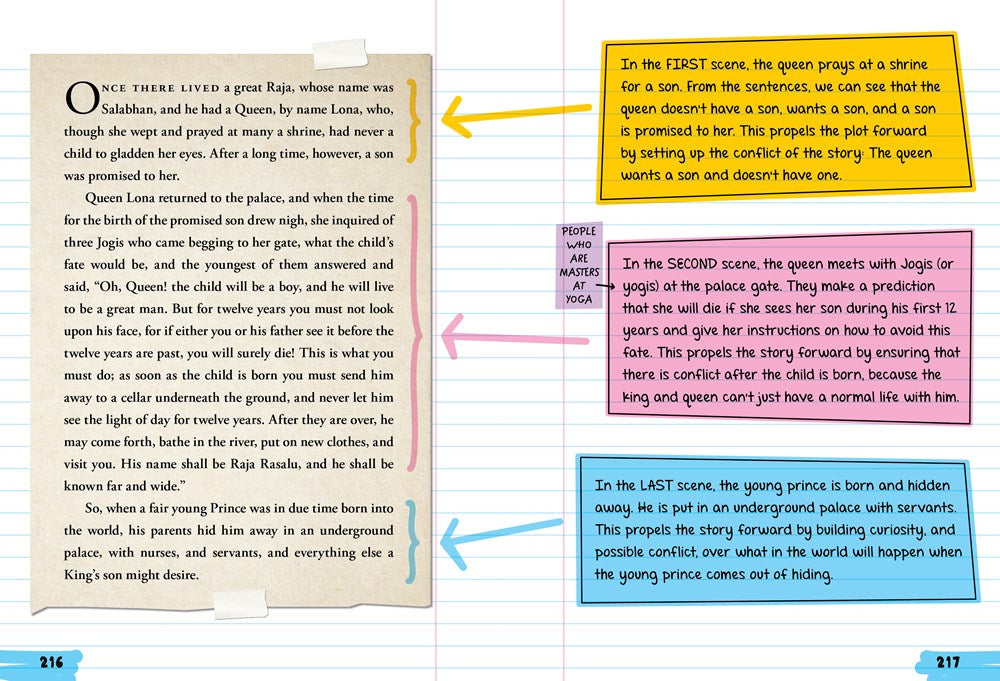 ONCE THERE LIVED a great Raja, whose name was
Salabhan, and he had a Queen, by name Lona, who,
though she wept and prayed at many a shrine, had never a
child to gladden her eyes. After a long time, however, a son
was promised to her.
Queen Lona returned to the palace, and when the time
for the birth of the promised son drew nigh, she inquired of
three Jogis who came begging to her gate, what the child’s
fate would be, and the youngest of them answered and
said, “Oh, Queen! the child will be a boy, and he will live
to be a great man. But for twelve years you must not look
upon his face, for if either you or his father see it before the
twelve years are past, you will surely die! This is what you
must do; as soon as the child is born you must send him
away to a cellar underneath the ground, and never let him
see the light of day for twelve years. After they are over, he
may come forth, bathe in the river, put on new clothes, and
visit you. His name shall be Raja Rasalu, and he shall be
known far and wide.”
So, when a fair young Prince was in due time born into
the world, his parents hid him away in an underground
palace, with nurses, and servants, and everything else a
King’s son might desire.
216
In the FIRST scene, the queen prays at a shrine
for a son. From the sentences, we can see that the
queen doesn't have a son, wants a son, and a son
is promised to her. This propels the plot forward
by setting up the conflict of the story: The queen
wants a son and doesn't have one.
PEOPLE
WHO
ARE
MASTERS
AT
YOGA
In the SECOND scene, the queen meets with Jogis (or
yogis) at the palace gate. They make a prediction
that she will die if she sees her son during his first 12
years and give her instructions on how to avoid this
fate. This propels the story forward by ensuring that
there is conflict after the child is born, because the
king and queen can't just have a normal life with him.
In the LAST scene, the young prince is born and hidden
away. He is put in an underground palace with servants.
This propels the story forward by building curiosity, and
possible conflict, over what in the world will happen when
the young prince comes out of hiding.
217